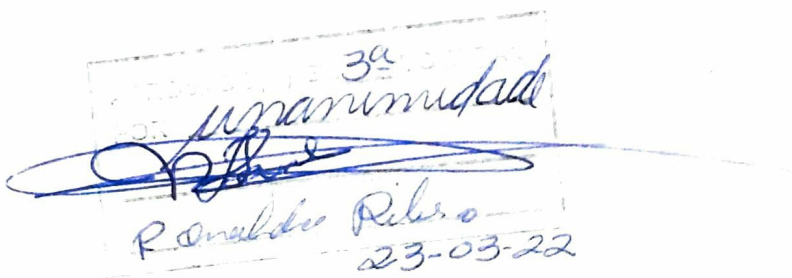 3ª
POR unanimidade
Ronaldo Ribeiro
23-03-22